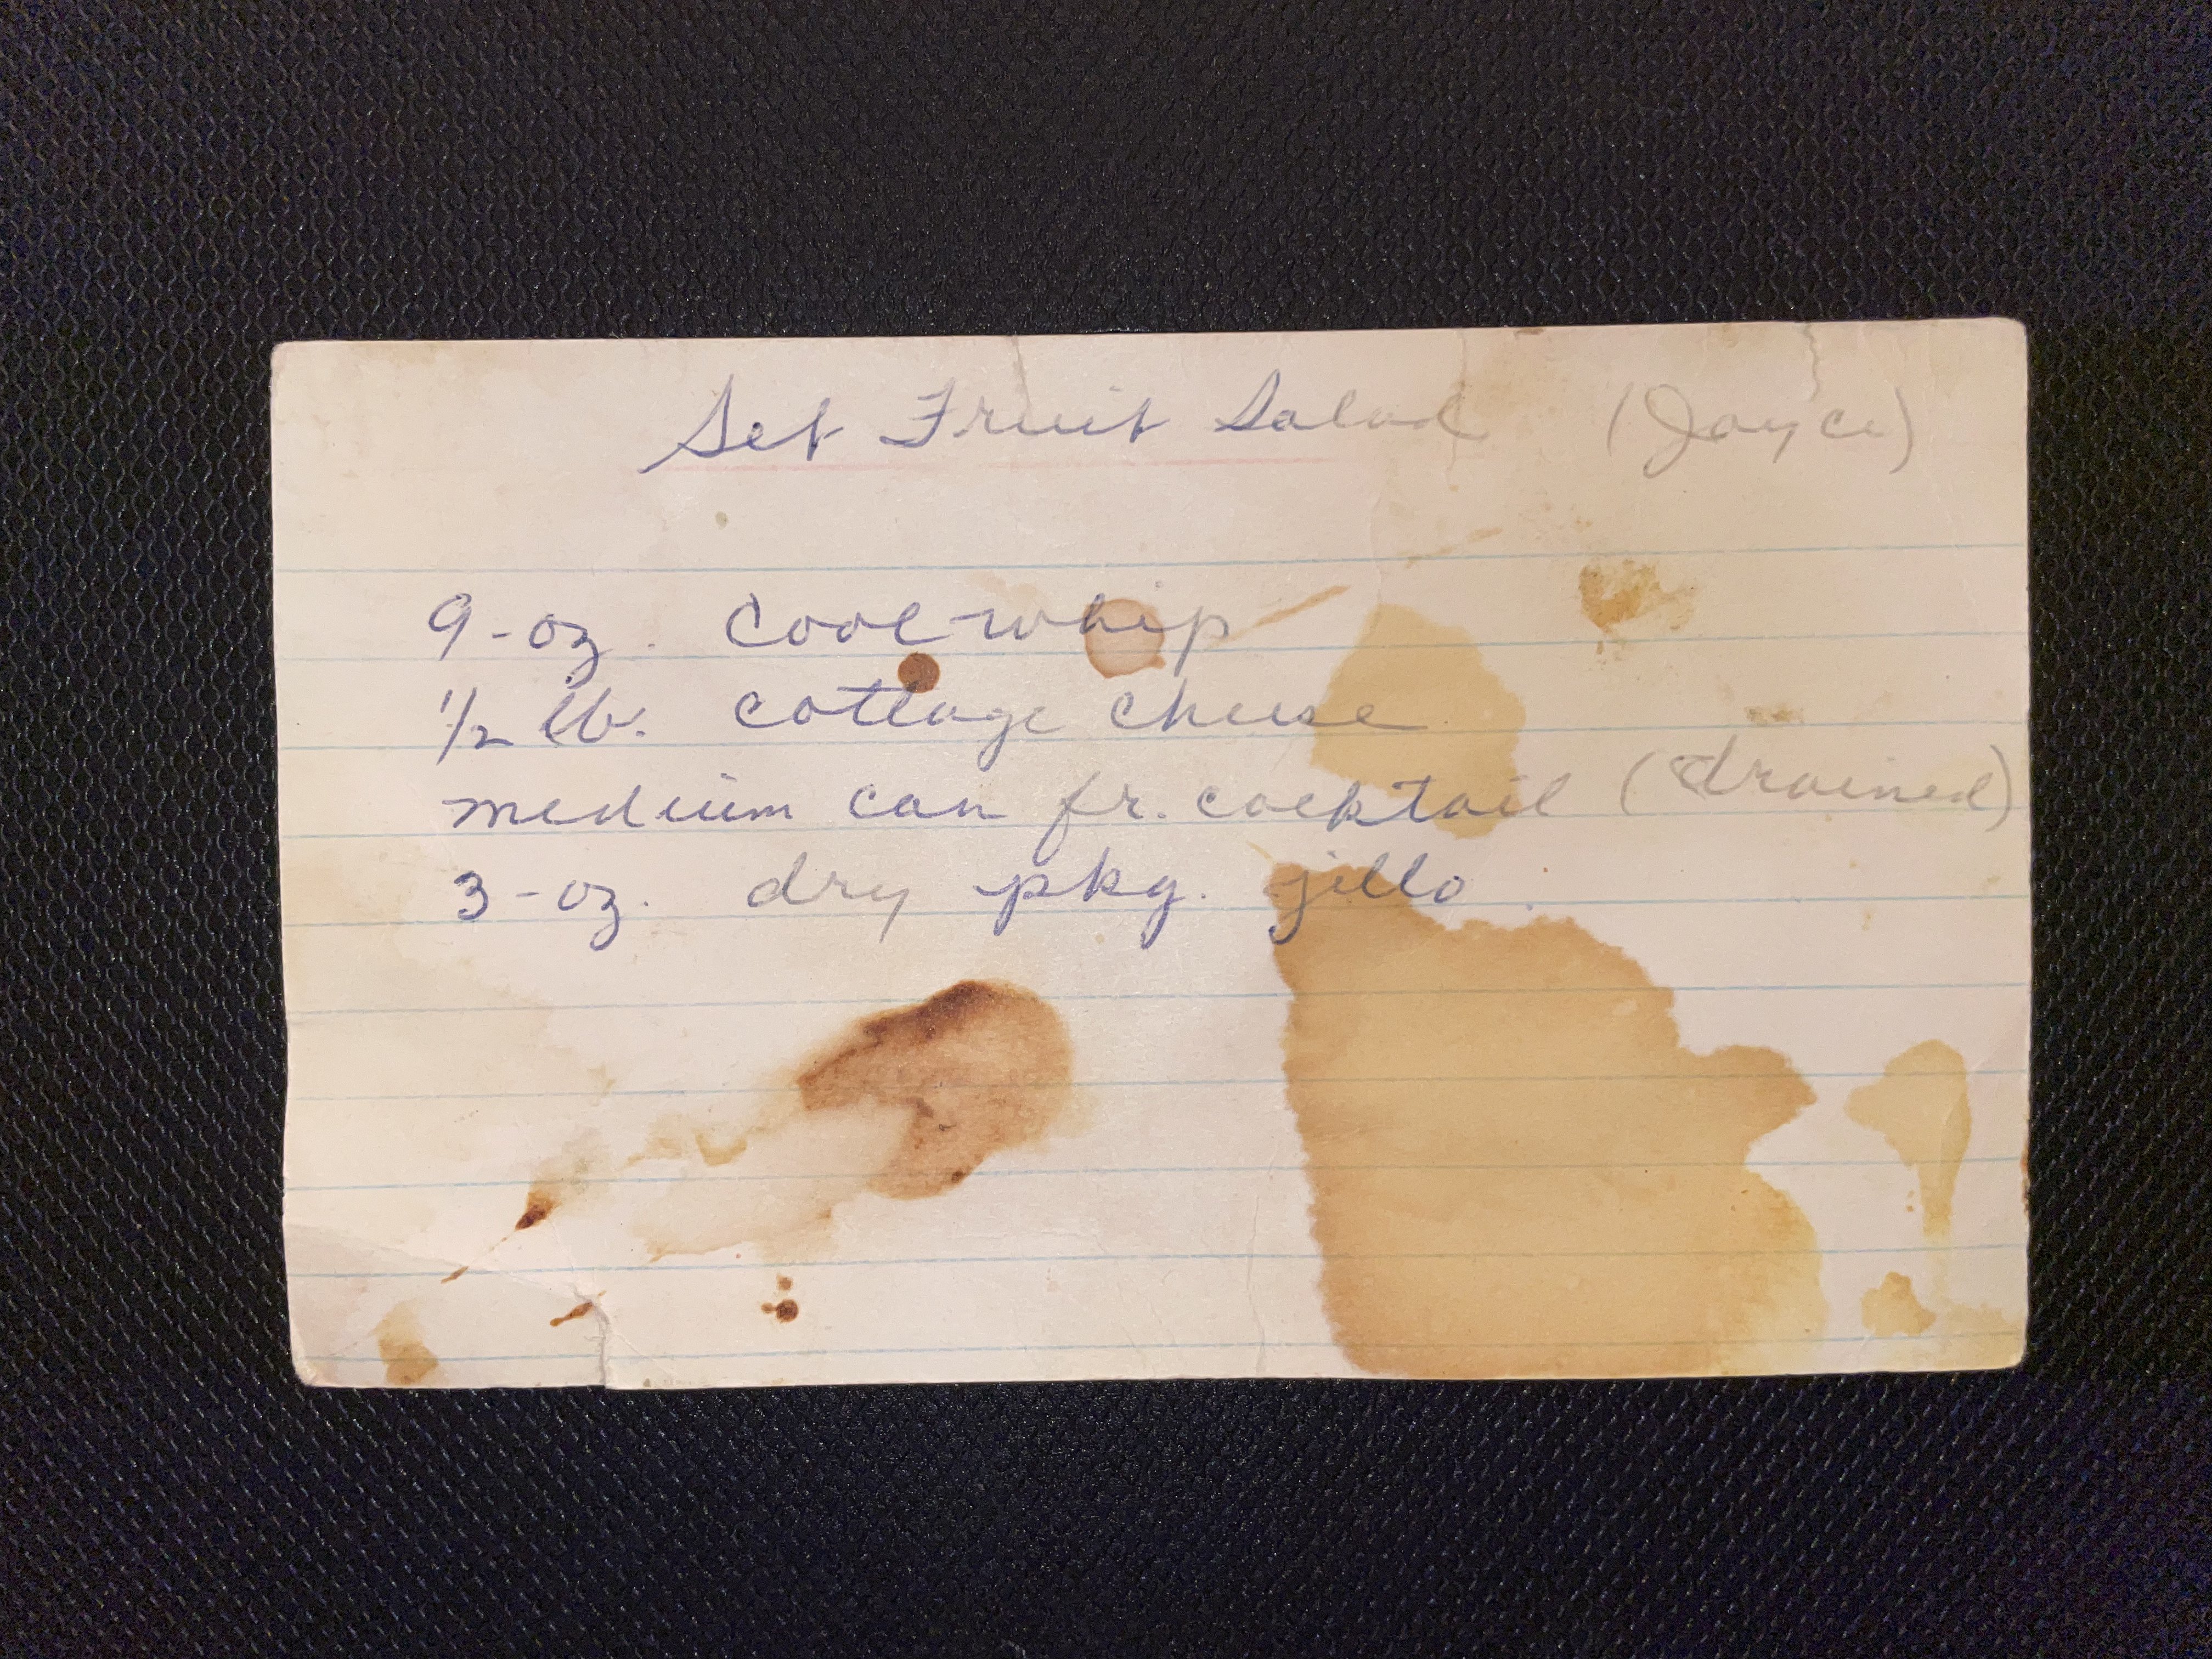 Set Fruit Salad (Joyce)
9-oz. Cool-whip
1/2 lb. cottage cheese
medium can fr. cocktail (drained)
3-oz. dry pkg. jello.